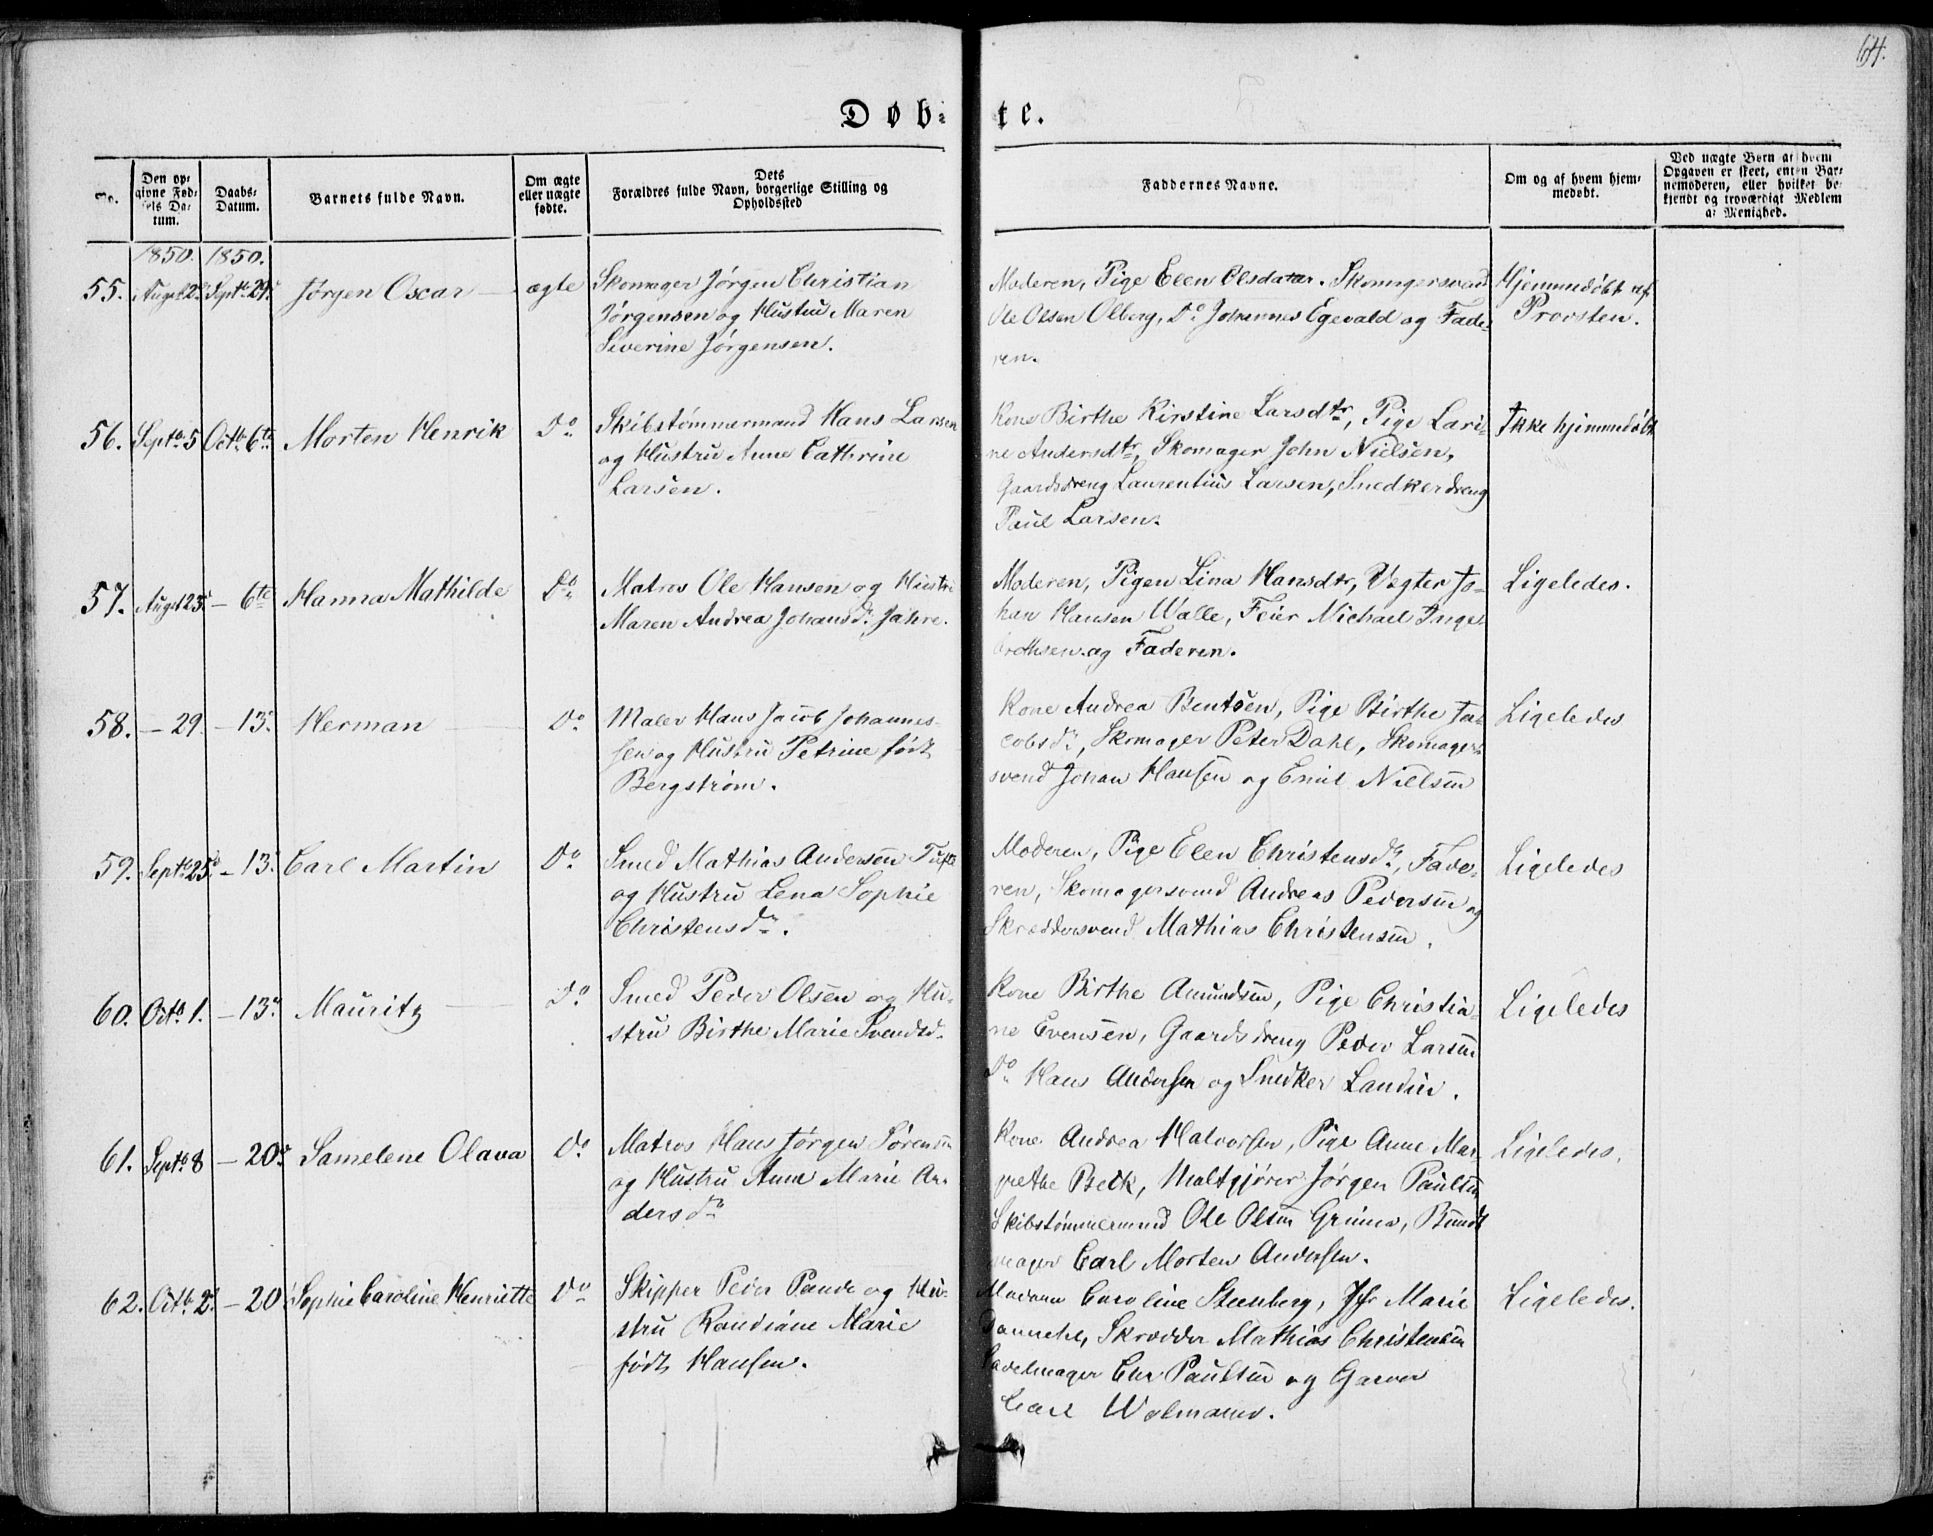 64.
Døb- te.
No.
Den opgivne Fødsels Datum.
Daabs-Datum.
Barnets fulde Navn.
Om ægte eller uægte fødte.
Dets Forældres fulde Navn, borgerlige Stilling og Opholdssted
Faddernes Navne.
Om og af hvem hjemmedøbt.
Ved uægte Børn af hvem Opgaven er skeet, enten Barnemoderen, eller hvilket bekjendt og troværdigt Medlem af Menighed.
1850. 1850.
55. Augst 2 Septr 29 Jørgen Oscar ægte
Skomager Jørgen Christian
Jørgensen og Hustru Maren
Severine Jørgensen.
Moderen, Pige Elen Olsdatter. Skomagersvend
Ole Olsen Olberg, Do Johannes Egevald og Fade-
ren.
Hjemmedøbt af
Provsten.
56. Septr 5 Octb. 6te Morten Henrik Do
Skibstømmermand Hans Larsen
og Hustru Anne Cathrine
Larsen.
Kone Birthe Kirstine Larsdtr, Pige Lari-
ne Andersdtr, Skomager John Nielsen,
Gaardsdreng Laurentius Larsen, Snedkerdreng
Paul Larsen.
Ikke hjemmedøbt
57. Augst 23 - 6te Hanna Mathilde Do
Matros Ole Hansen og Hustru
Maren Andrea Johansdr Jahre.
Moderen, Pigen Lina Hansdtr, Vægter Jo-
han Hansen Walle, Feier Michael Inge-
brethsen og Faderen.
Ligeledes.
58. - 29. - 13. Herman Do
Maler Hans Jacob Johannes-
sen og Hustru Petrine født
Bergstrøm.
Kone Andrea Bentsen, Pige Birthe Ja-
cobsdr, Skomager Peter Dahl, Skomager-
svend Johan Hansen og Emil Nielsen
Ligeledes
59. Septb. 25 - 13. Carl Martin Do
Smed Mathias Andersen Tufte
og Hustru Lena Sophie
Christensdr.
Moderen, Pige Elen Christensdr, Fade-
ren, Skomagersvend Andreas Pedersen og
Skræddersvend Mathias Christensen.
Ligeledes
60. Octb. 1. - 13. Mauritz Do
Smed Peder Olsen og Hu-
stru Birthe Marie Svendsd.
Kone Birthe Amundsen, Pige Christia-
ne Evensen, Gaardsdreng Peder Larsen
Do Hans Andersen og Snedker Landin.
Ligeledes
61. Septb 8 - 20. Samelene Olava Do
Matros Hans Jørgen Sørensen
og Hustru Anne Marie An-
dersdr
Kone Andrea Halvorsen, Pige Anne Mar-
grethe Beck, Maltgjører Jørgen Paulsen
Skibstømmermand Ole Olsen Grimes, Bundt-
mager Carl Morten Andersen.
Ligeledes.
62. Octb. 2. - 20 Sophie Caroline Henriette Do
Skipper Peder Paude og Hu-
stru Randiane Marie
født Hansen.
Madam Caroline Steenberg, Jfr Marie
Dannehl, Skrædder Mathias Christensen
Sadelmager Chr Paulsen og Garver
Carl Wolmann.
Ligeledes.